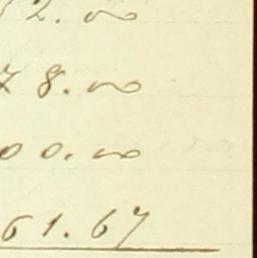 2.00
78.00
00.00
61.67